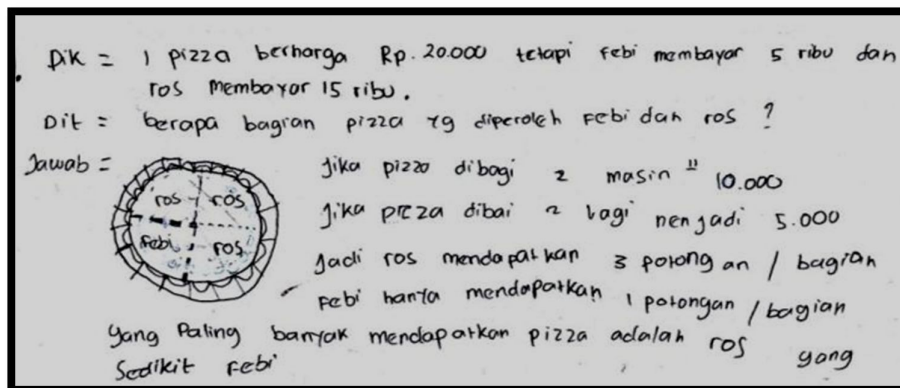 Dik = 1 pizza berharga Rp. 20.000 tetapi febi membayar 5 ribu dan
ros membayar 15 ribu.
Dit = berapa bagian pizza yg diperoleh febi dan ros ?
Jawab =
ros ros
febi ros
Jika pizza dibagi 2 masin" 10.000
Jika pizza dibai 2 lagi menjadi 5.000
Jadi ros mendapatkan 3 potongan / bagian
febi hanya mendapatkan 1 potongan / bagian
yang Paling banyak mendapatkan pizza adalah ros yang
Sedikit febi